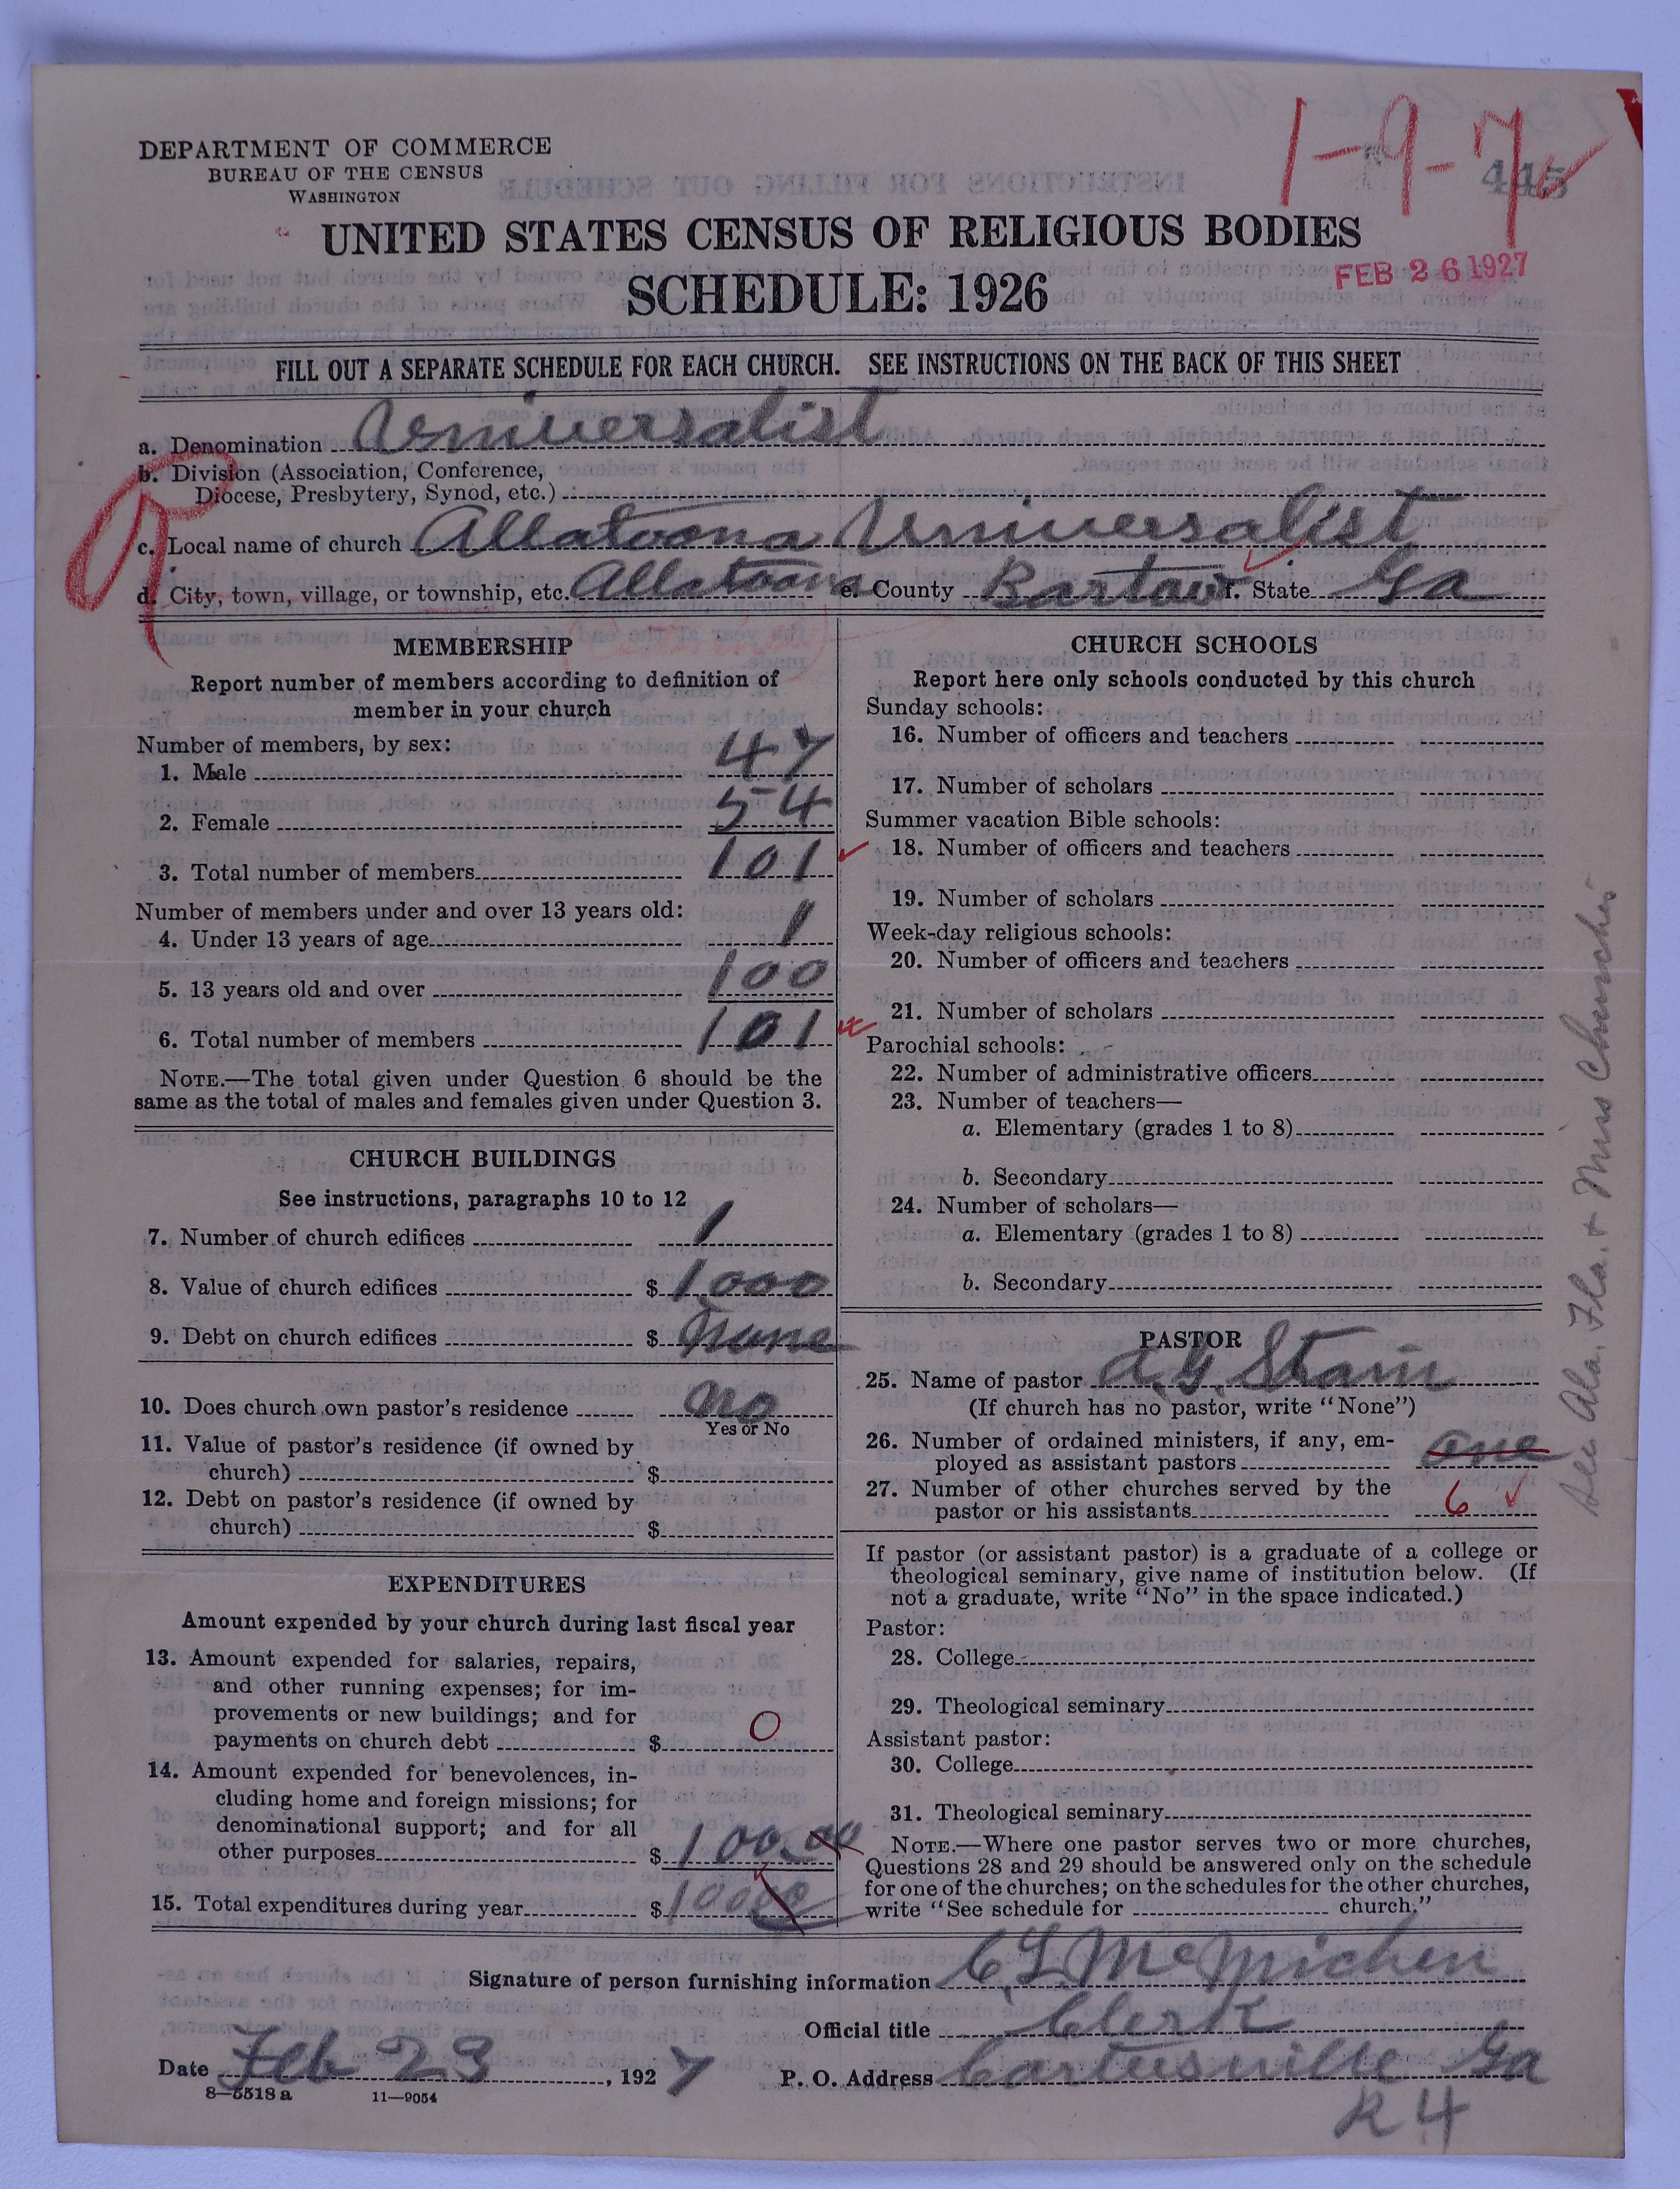 DEPARTMENT OF COMMERCE
BUREAU OF THE CENSUS
WASHINGTON
1-9-7
445
UNITED STATES CENSUS OF RELIGIOUS BODIES
FEB 26 1927
SCHEDULE: 1926
FILL OUT A SEPARATE SCHEDULE FOR EACH CHURCH. SEE INSTRUCTIONS ON THE BACK OF THIS SHEET
a. Denomination Universalist
b. Division (Association, Conference,
Diocese, Presbytery, Synod, etc.)
c. Local name of church Allatoona Universalist
d. City, town, village, or township, etc. Allatoona e. County Bartow f. State Ga
MEMBERSHIP
Report number of members according to definition of
member in your church
Number of members, by sex:
1. Male 47
2. Female 54
3. Total number of members 101
Number of members under and over 13 years old:
4. Under 13 years of age 1
5. 13 years old and over 100
6. Total number of members 101
NOTE.—The total given under Question 6 should be the
same as the total of males and females given under Question 3.
CHURCH BUILDINGS
See instructions, paragraphs 10 to 12
7. Number of church edifices 1
8. Value of church edifices $ 1000
9. Debt on church edifices $ None
10. Does church own pastor's residence no
Yes or No
11. Value of pastor's residence (if owned by
church) $
12. Debt on pastor's residence (if owned by
church) $
EXPENDITURES
Amount expended by your church during last fiscal year
13. Amount expended for salaries, repairs,
and other running expenses; for im-
provements or new buildings; and for
payments on church debt $ 0
14. Amount expended for benevolences, in-
cluding home and foreign missions; for
denominational support; and for all
other purposes $ 100.00
15. Total expenditures during year $ 10000
CHURCH SCHOOLS
Report here only schools conducted by this church
Sunday schools:
16. Number of officers and teachers
17. Number of scholars
Summer vacation Bible schools:
18. Number of officers and teachers
19. Number of scholars
Week-day religious schools:
20. Number of officers and teachers
21. Number of scholars
Parochial schools:
22. Number of administrative officers
23. Number of teachers—
a. Elementary (grades 1 to 8)
b. Secondary
24. Number of scholars—
a. Elementary (grades 1 to 8)
b. Secondary
PASTOR
25. Name of pastor A. G. Strain
(If church has no pastor, write "None")
26. Number of ordained ministers, if any, em-
ployed as assistant pastors one
27. Number of other churches served by the
pastor or his assistants 6
If pastor (or assistant pastor) is a graduate of a college or
theological seminary, give name of institution below. (If
not a graduate, write "No" in the space indicated.)
Pastor:
28. College
29. Theological seminary
Assistant pastor:
30. College
31. Theological seminary
NOTE.—Where one pastor serves two or more churches,
Questions 28 and 29 should be answered only on the schedule
for one of the churches; on the schedules for the other churches,
write "See schedule for church."
See Ala. Fla. + Miss Churches
Signature of person furnishing information C L McMichen
Official title Clerk
Date Feb 23, 1927 P. O. Address Cartersville Ga
R 4
8—5518 a 11—9054